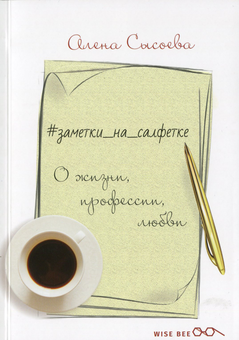 Алена Сысоева
#заметки_на_салфетке
О жизни,
профессии,
любви
WISE BEE